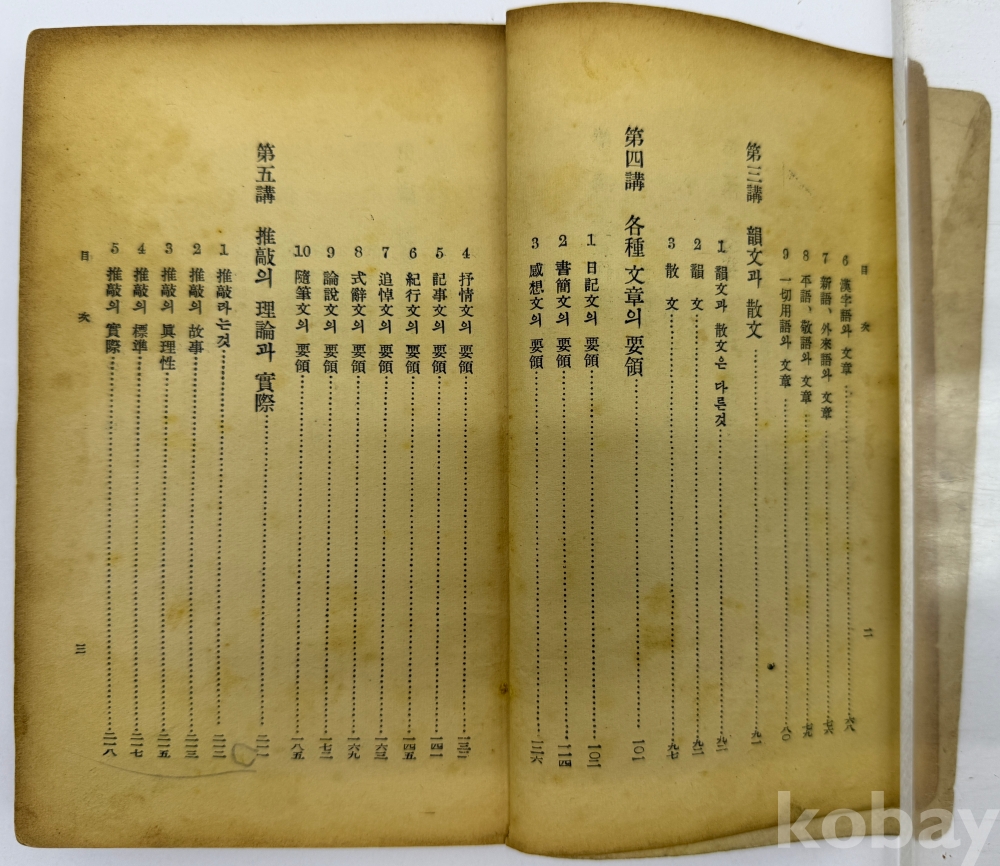 目次
二
6 漢字語와 文章 六八
7 新語、外來語와 文章 七六
8 平語、敬語와 文章 七九
9 一切用語와 文章 八〇
第三講 韻文과 散文 九一
1 韻文과 散文은 다른것 九二
2 韻文 九二
3 散文 九七
第四講 各種 文章의 要領 一〇一
1 日記文의 要領 一〇二
2 書簡文의 要領 一一四
3 感想文의 要領 一二六
4 抒情文의 要領
5 記事文의 要領 一四一
6 紀行文의 要領 一四五
7 追悼文의 要領 一六三
8 式辭文의 要領 一六九
9 論說文의 要領 一七二
10 隨筆文의 要領 一八五
第五講 推敲의 理論과 實際 二一一
1 推敲라는것
2 推敲의 故事 二一三
3 推敲의 眞理性 二一五
4 推敲의 標準 二一七
5 推敲의 實際 二一八
目次
三
kobay